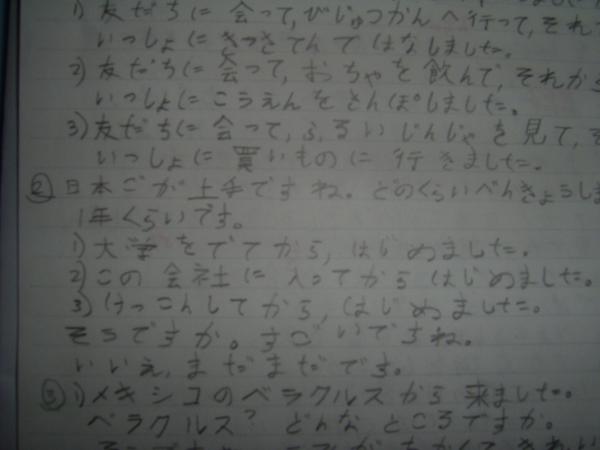 1) 友だちに 会って, びじゅつかん へ 行って, それ
いっしょに きっさてんで はなしました。
2) 友だちに 会って, おちゃを 飲んで, それから
いっしょに こうえんを さんぽしました。
3) 友だちに 会って, ふるい じんじゃ を 見て, そ
いっしょに 買いもの に 行きました。
② 日本ごが 上手ですね。どのくらいべんきょうしま
1年くらいです。
1) 大学をでてから, はじめました。
2) この 会社に 入ってから はじめました。
3) けっこんしてから, はじめました。
そうですか。すごいですね。
いいえ, まだまだです。
③ 1) メキシコのベラクルスから 来ました。
ベラクルス? どんな ところですか。